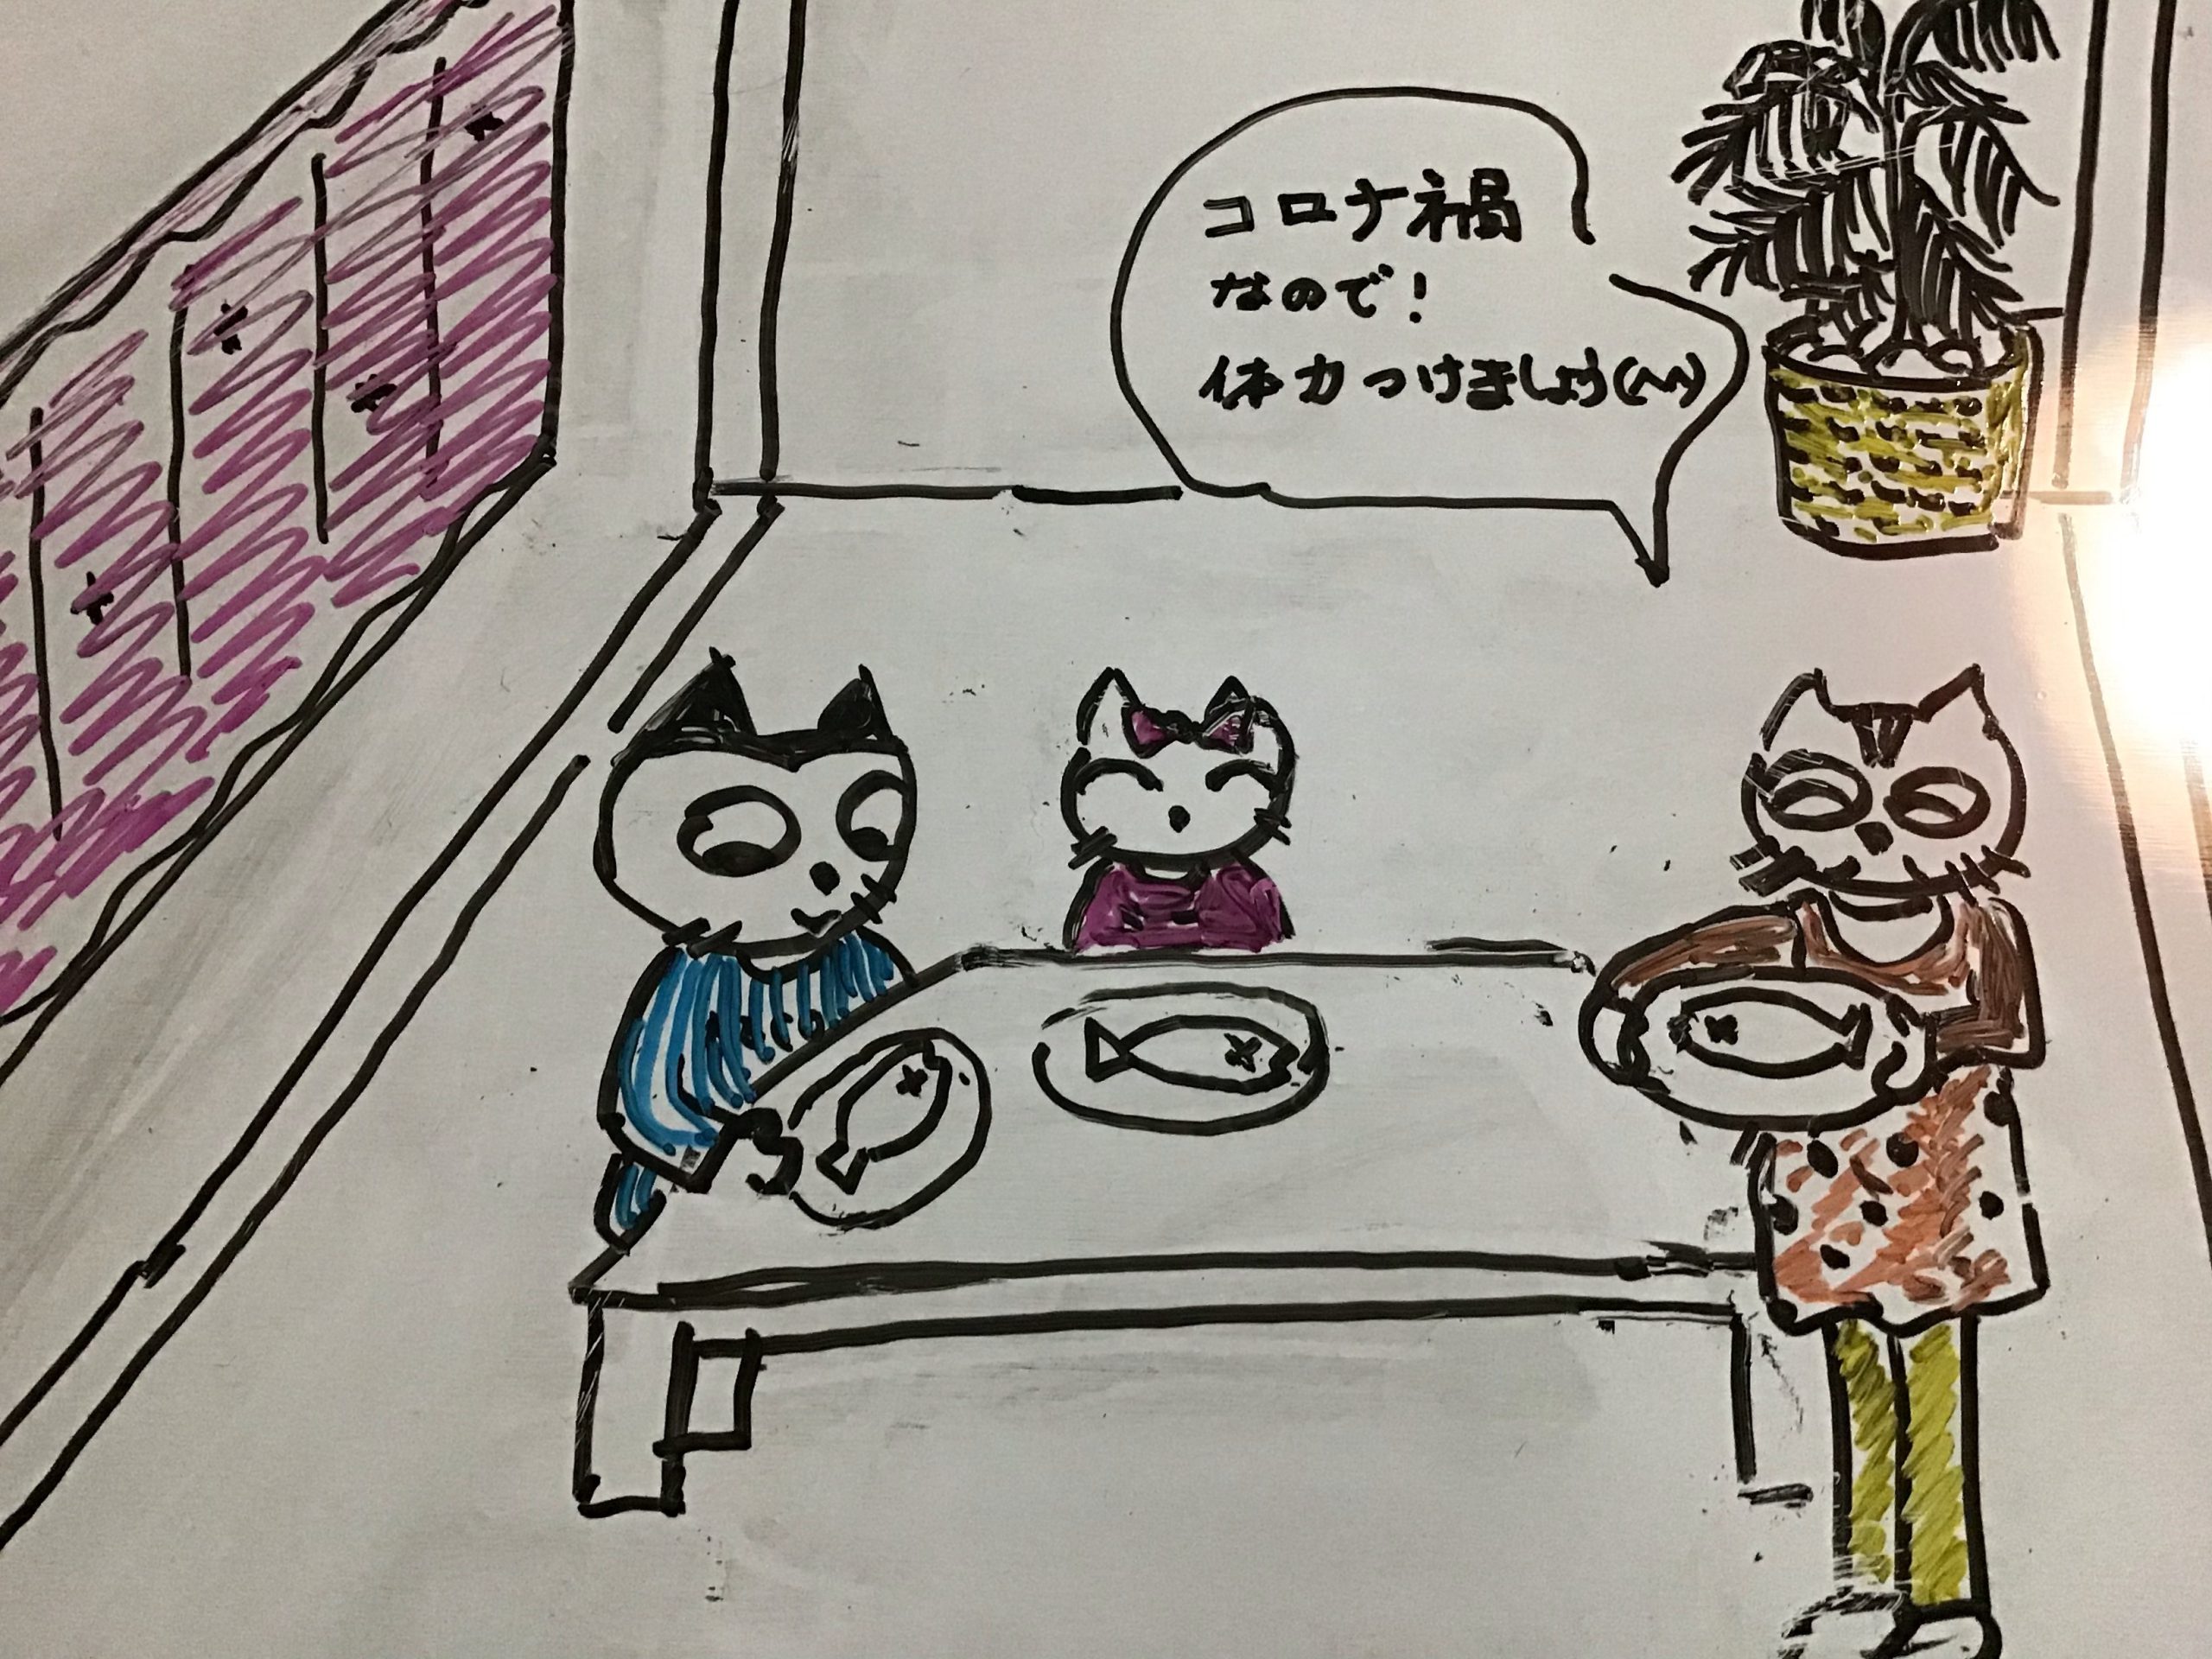 コロナ禍
なので！
体力つけましょう(^^)